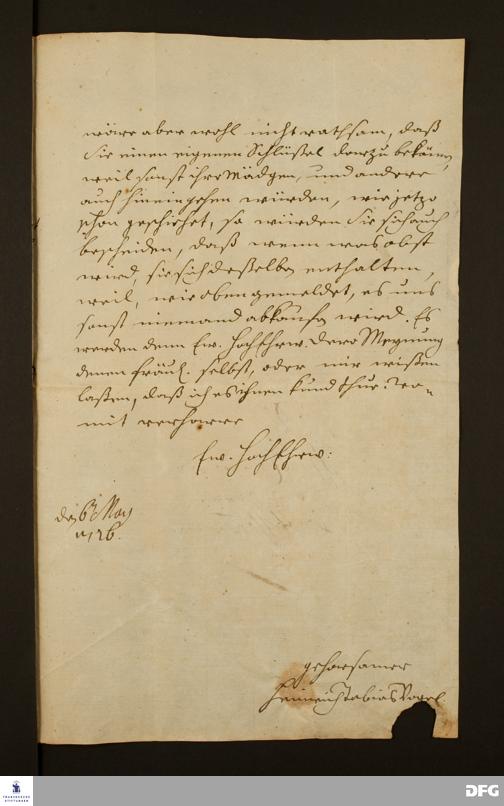 wäre aber wohl nicht rathsam, daß
Sie einen eigenen Schlüßel darzu bekäme,
weil sonst ihre Mädgen, und andere
auch hineingehen würden, wie jetzo
schon geschiehet, so würden Sie sich auch
bescheiden, daß wenn was obst
wird, sie sich deßelben enthalten,
weil, wie oben gemeldet, es uns
sonst niemand abkaufen wird. Es
werden denn Ew. HochEhrw. Dero Meynung
denen Fräul. selbst, oder mir wißen
laßen, daß ich es ihnen kund thue. Wo-
mit verharre
Ew. HochEhrw:
den 6 May
1726.
gehorsamer
Heinrich Tobias Vogel
FRANCKESCHE STIFTUNGEN
DFG